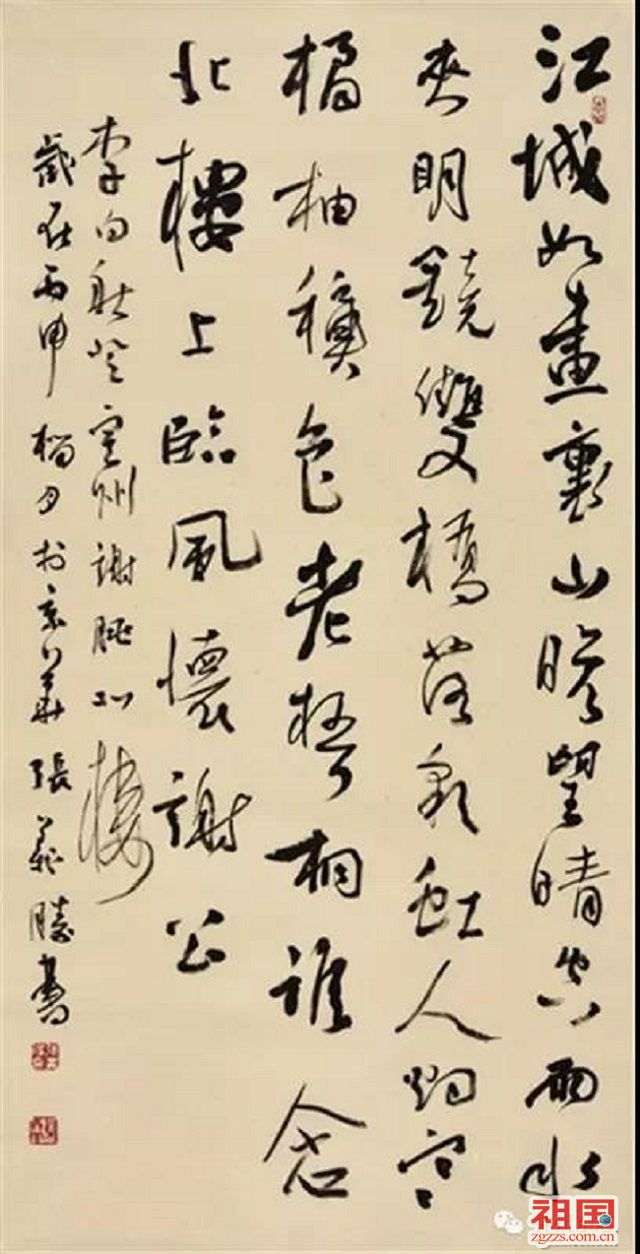 江城如畫裏山望晴空兩水
夾明鏡雙橋落彩虹人烟寒
橘柚秋色老梧桐誰念
北樓上臨風懷謝公
李白秋登宣州謝脁北樓
歲在丙申榴月於京華張義勝書
祖国
zgzzs.com.cn